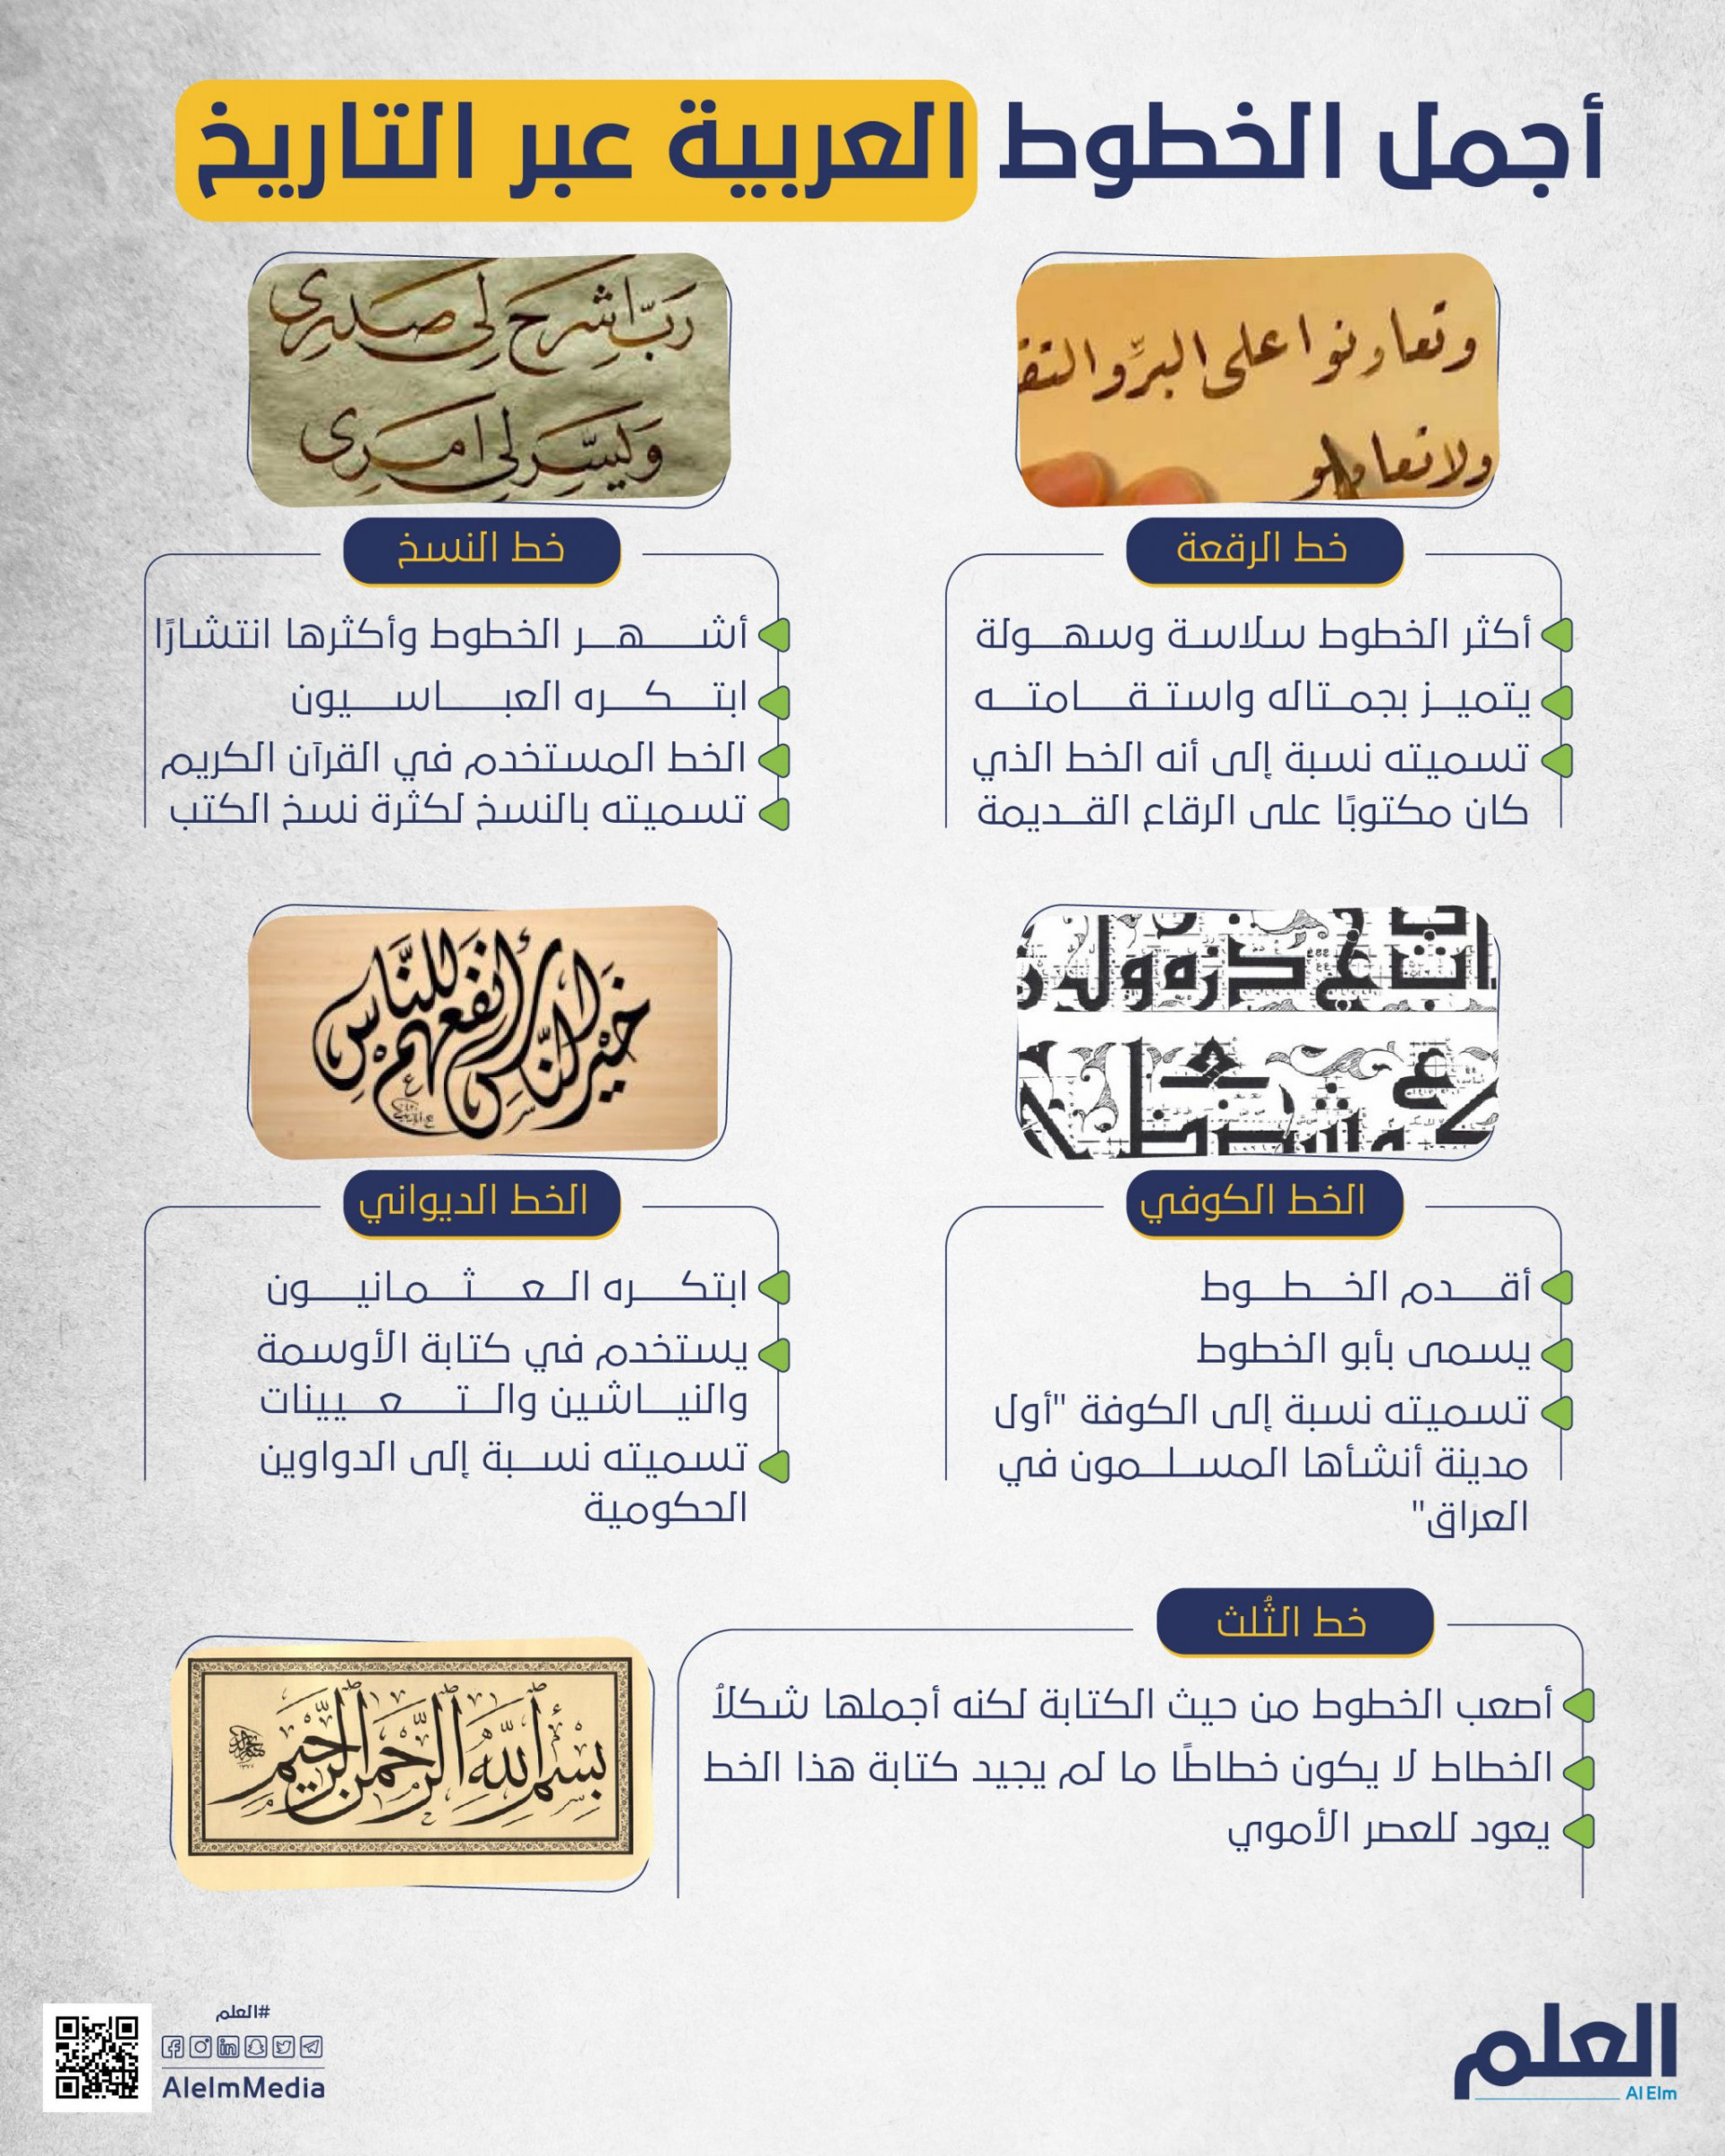 أجمل الخطوط العربية عبر التاريخ
وتعاونوا على البرِّ والتقـ
ولا تعا
خط الرقعة
أكثر الخطوط سلاسة وسهـولة
يتميـز بجمـتاله واستـقـامتـه
تسميته نسبة إلى أنه الخط الذي
كان مكتوبًا على الرقاع القـديمة
رَبِّ اشرَح لِي صَدرِي
وَيَسِّر لِي امرِي
خط النسخ
أشـهـر الخطوط وأكثرها انتشارًا
ابتـكـره العبـاسـيون
الخط المستخدم في القرآن الكريم
تسميته بالنسخ لكثرة نسخ الكتب
الخط الكوفي
أقـدم الخـطـوط
يسمى بأبو الخطوط
تسميته نسبة إلى الكوفة "أول
مدينة أنشأها المسـلـمون في
العراق"
خَيْرُ النَّاسِ أَنفَعُهُم لِلنَّاسِ
الخط الديواني
ابتكـره الـعـثـمانيـون
يستخدم في كتابة الأوسمة
والنيـاشين والـتـعـيينات
تسميته نسـبة إلى الدواوين
الحكومية
خط الثُلث
أصعب الخطوط من حيث الكتابة لكنه أجملها شكلاً
الخطاط لا يكون خطاطًا ما لم يجيد كتابة هذا الخط
يعود للعصر الأموي
بِسْمِ اللهِ الرَّحْمنِ الرَّحِيمِ
العلم
Al Elm
#العلم
AlelmMedia